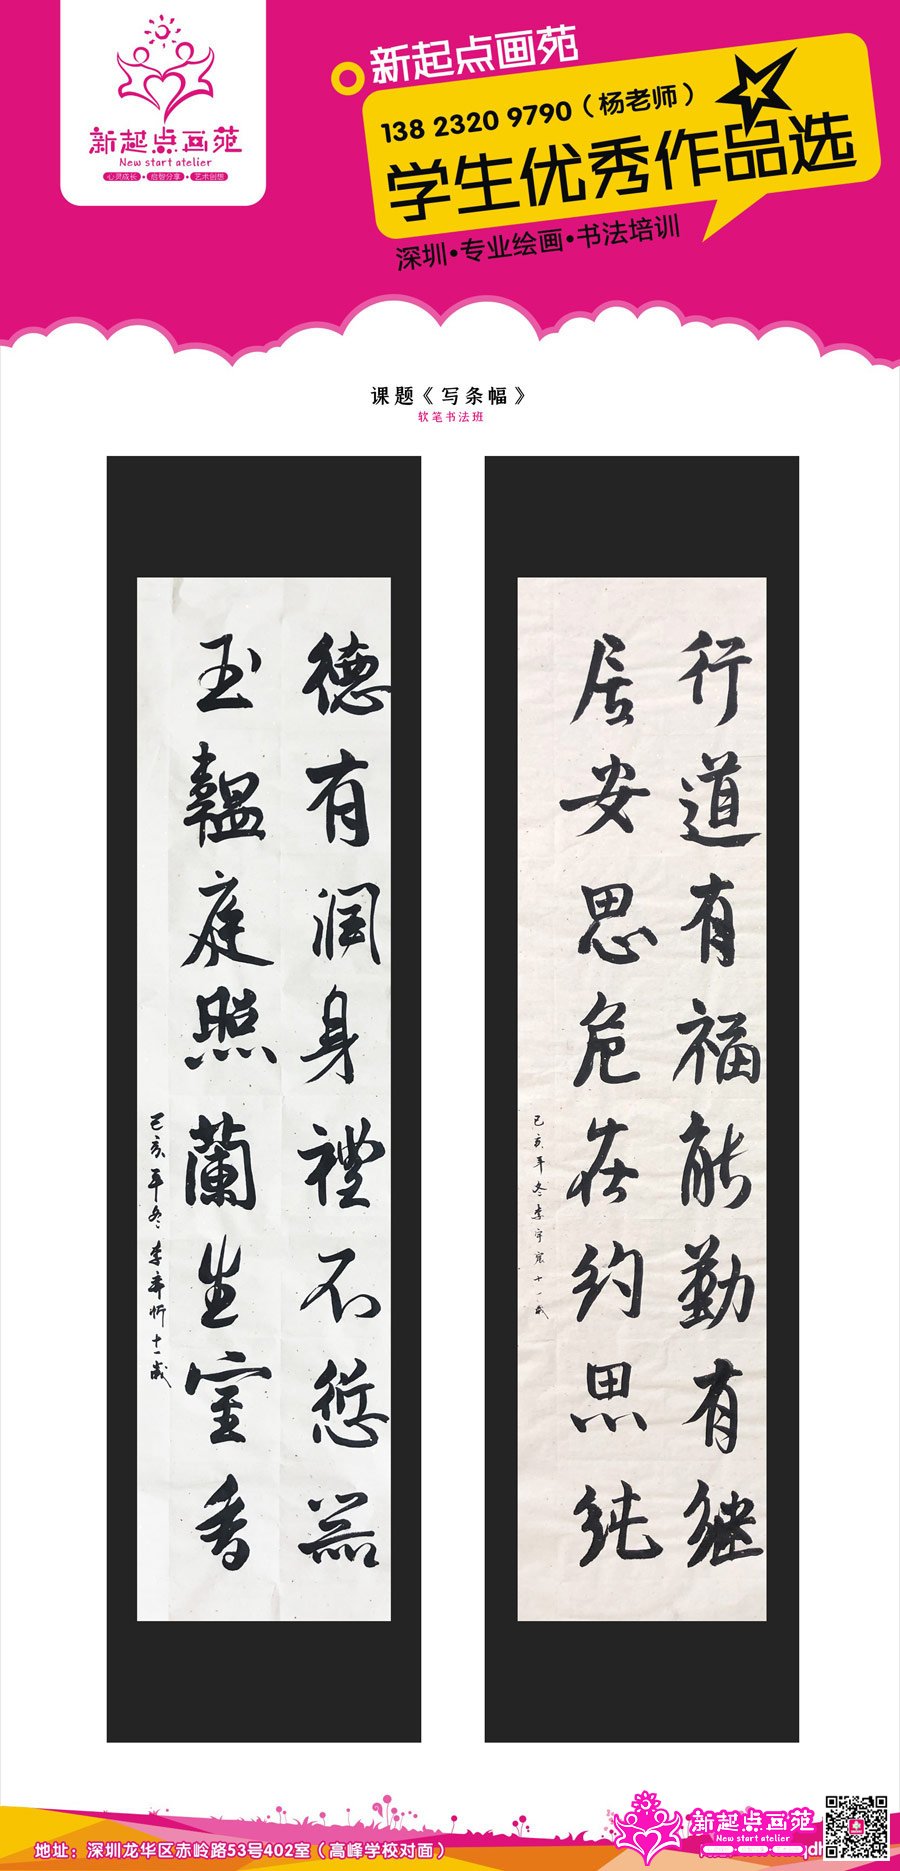 新起点画苑
New start atelier
心灵成长·启智分享·艺术创想
新起点画苑
138 2320 9790（杨老师）
学生优秀作品选
深圳·专业绘画·书法培训
课题《写条幅》
软笔书法班
德有润身禮不愆器
玉韞庭照蘭生室香
己亥年冬李
十一岁
行道有福能勤有继
居安思危在约思纯
己亥年冬李宇宸十一岁
地址：深圳龙华区赤岭路53号402室（高峰学校对面）
新起点画苑
New start atelier